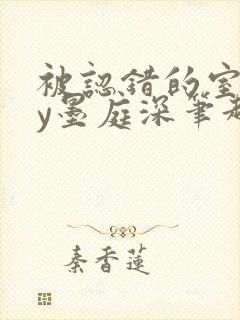 被認錯的室
y墨庭深筆趣
秦香蓮